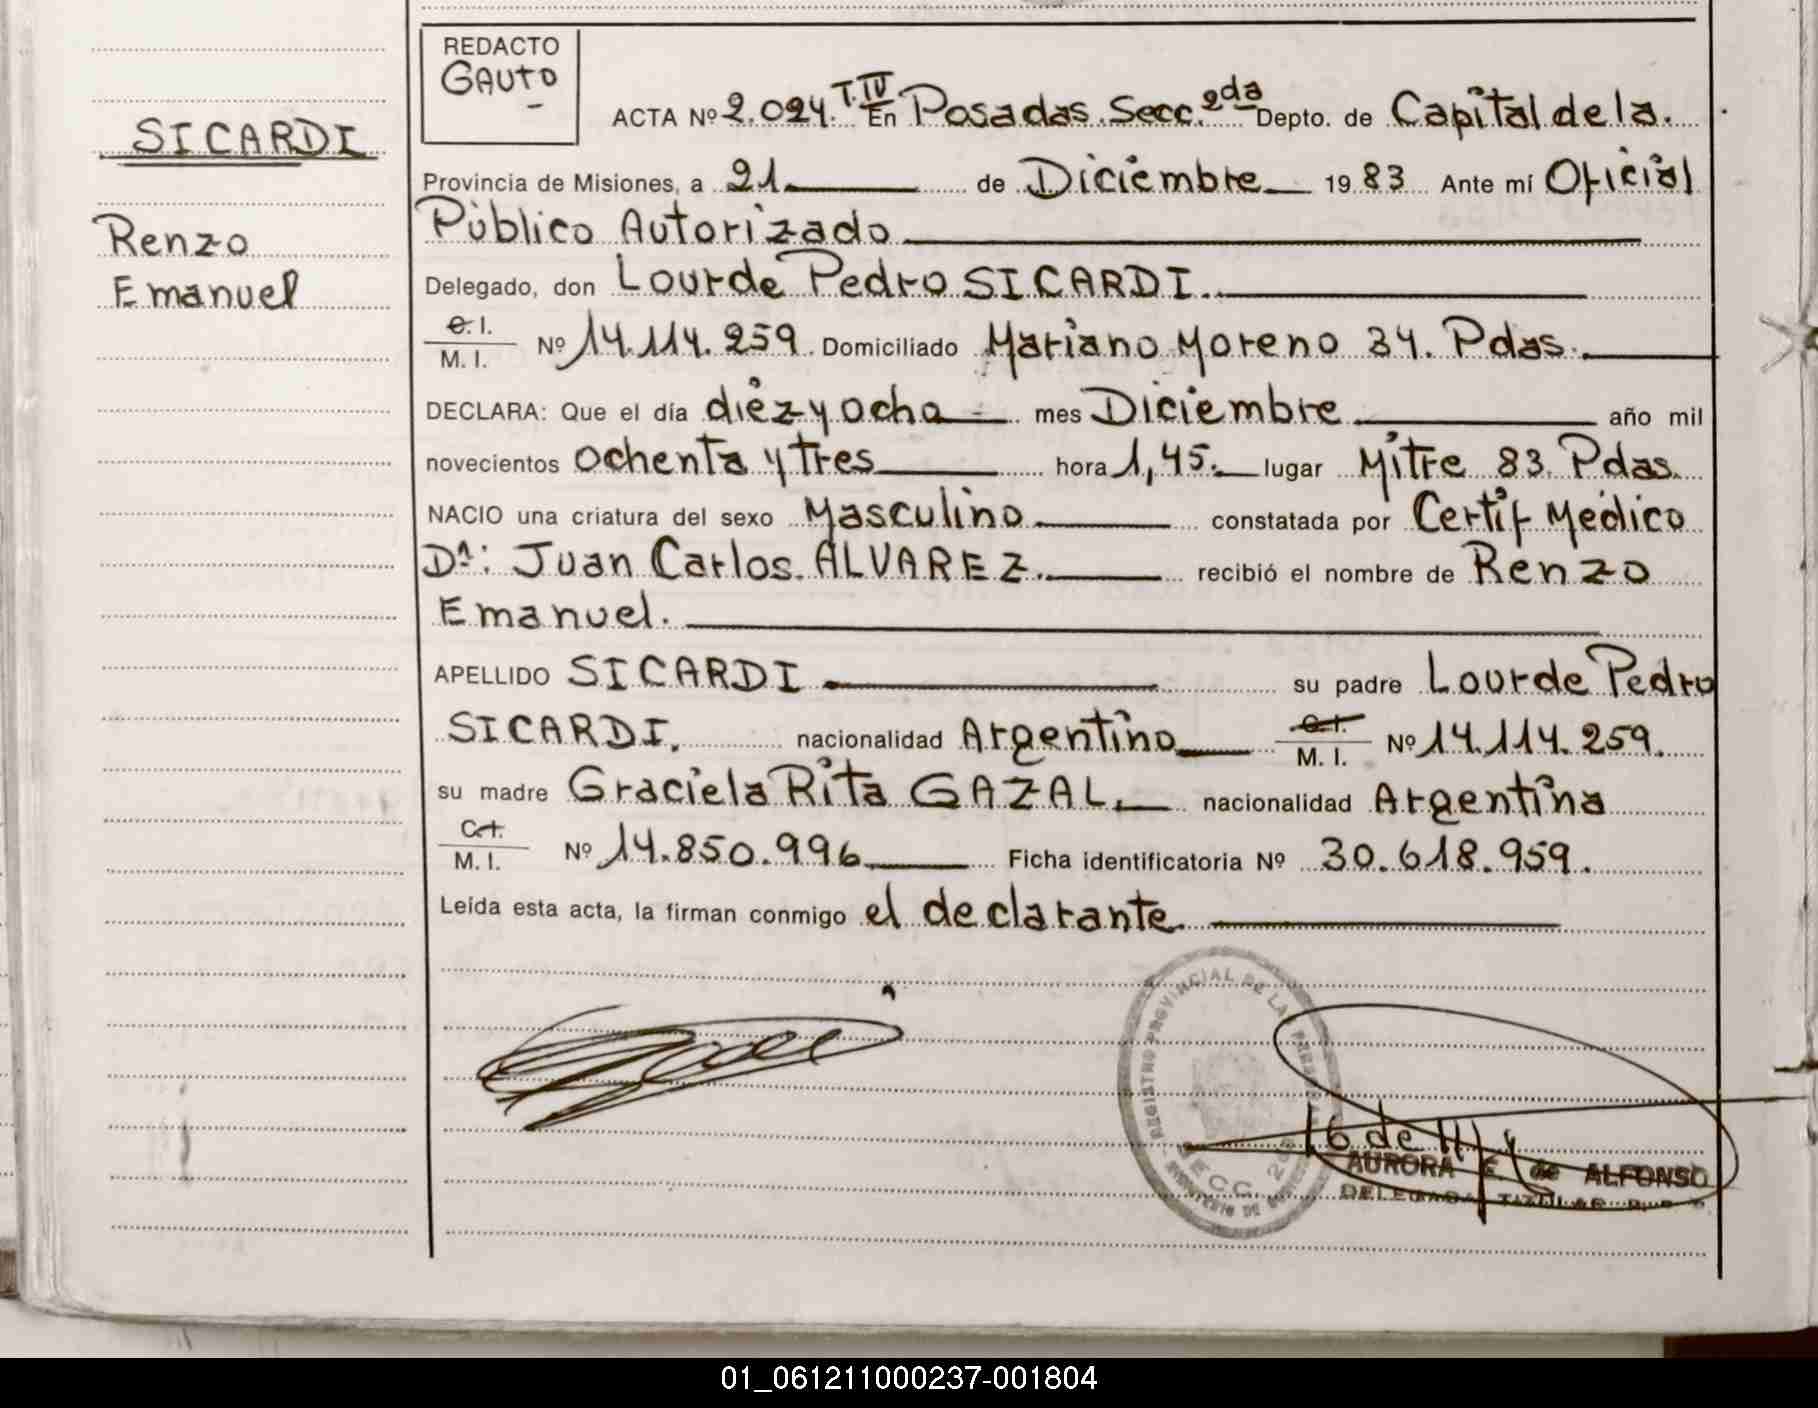 REDACTO
GAUTO
SICARDI
Renzo
Emanuel
ACTA Nº 2.024. T.IV En Posadas. Secc. 2da Depto. de Capital de la.
Provincia de Misiones, a 21 de Diciembre 19 83 Ante mí Oficial
Público Autorizado
Delegado, don Lourde Pedro SICARDI.
C. I.
M. I. Nº 14.114.259. Domiciliado Mariano Moreno 34. Pdas.
DECLARA: Que el día diez y ocho mes Diciembre año mil
novecientos ochenta y tres hora 1,45. lugar Mitre 83. Pdas.
NACIO una criatura del sexo Masculino constatada por Certif Médico
Dr: Juan Carlos. ALVAREZ. recibió el nombre de Renzo
Emanuel.
APELLIDO SICARDI su padre Lourde Pedro
SICARDI. nacionalidad Argentino C. I. M. I. Nº 14.114.259.
su madre Graciela Rita GAZAL. nacionalidad Argentina
C. I.
M. I. Nº 14.850.996 Ficha identificatoria Nº 30.618.959.
Leída esta acta, la firman conmigo el declarante.
REGISTRO PROVINCIAL DE LAS PERSONAS
SECC. 2da
AURORA E. de ALFONSO
DELEGADA TITULAR
01_061211000237-001804